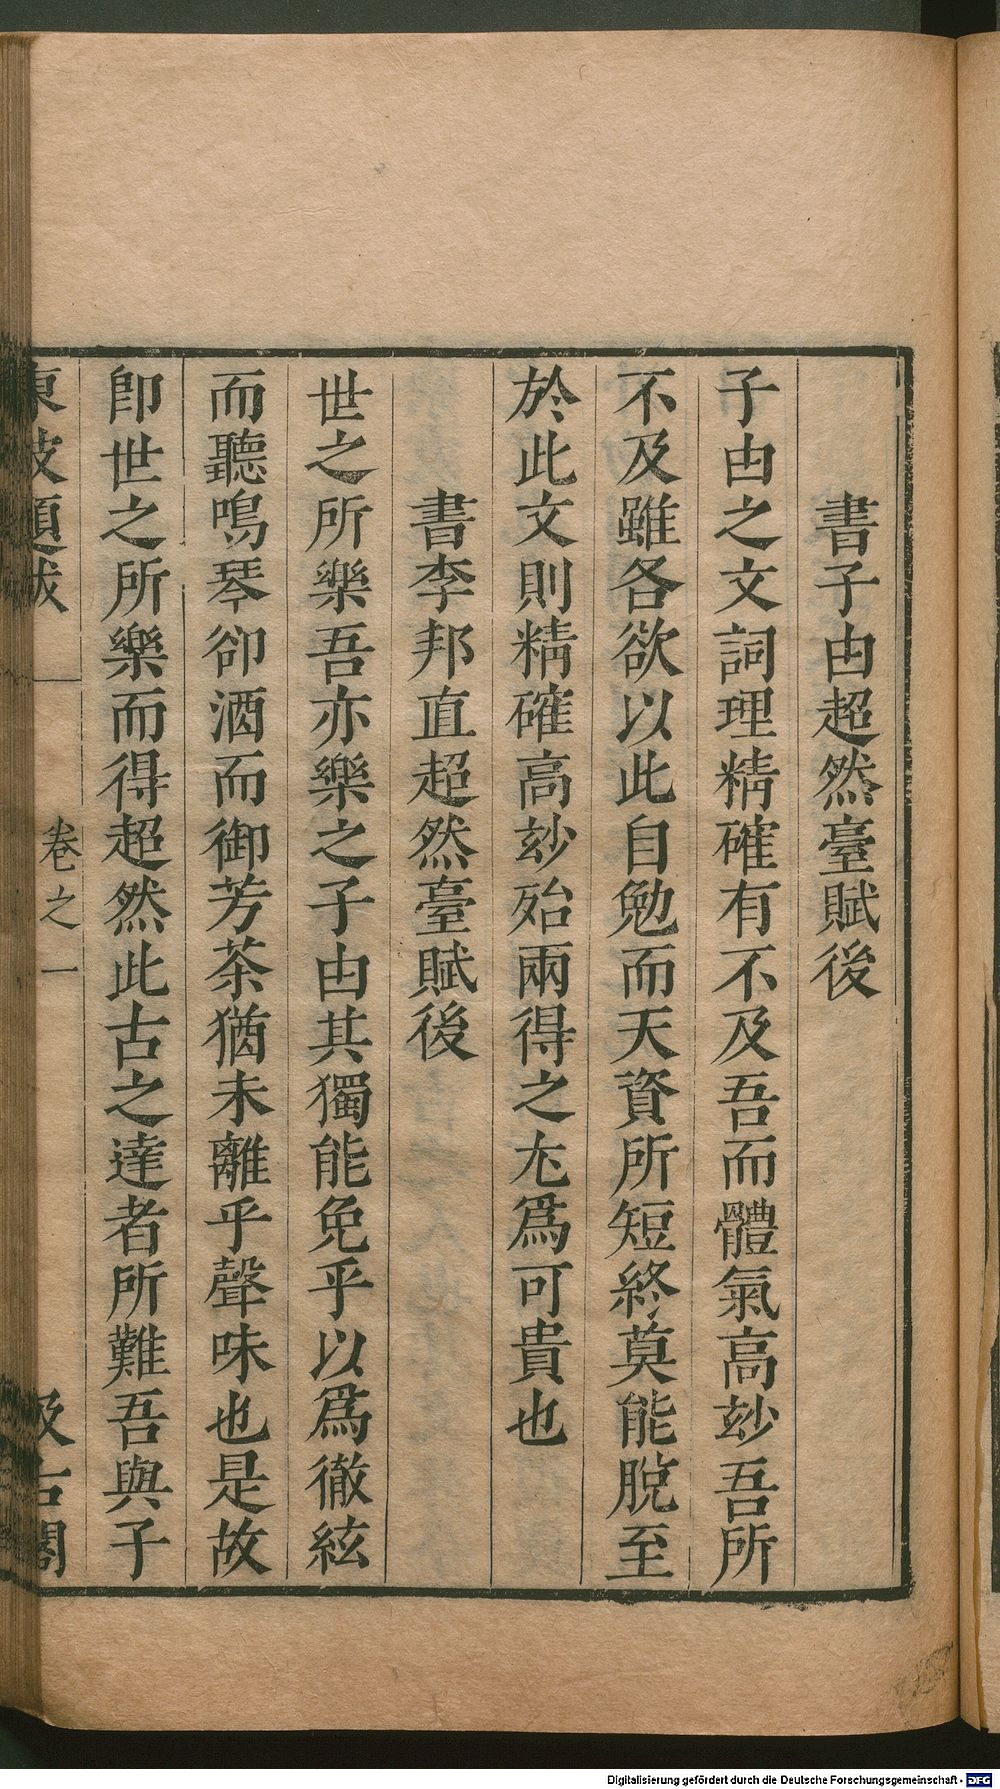 書子由超然臺賦後
子由之文詞理精確有不及吾而體氣高玅吾所
不及雖各欲以此自勉而天資所短終莫能脫至
於此文則精確高玅殆兩得之尤爲可貴也
書李邦直超然臺賦後
世之所樂吾亦樂之子由其獨能免乎以爲徹絃
而聽鳴琴卻酒而御芳茶猶未離乎聲味也是故
卽世之所樂而得超然此古之達者所難吾與子
東坡題跋 卷之一 汲古閣
Digitalisierung gefördert durch die Deutsche Forschungsgemeinschaft - DFG